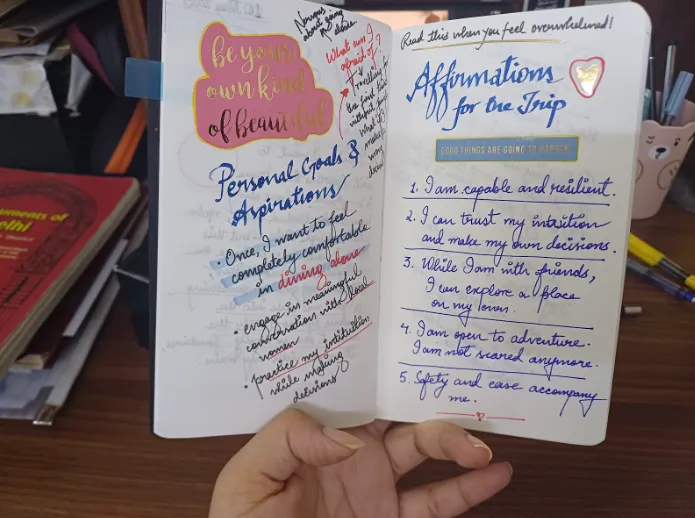 Nervous
about going
alone
be your
own kind
of beautiful
What am I
afraid of?
Travelling for
the first time
without
What if
make
wrong
Personal Goals &
Aspirations
• Once, I want to feel
completely comfortable
in dining alone
• engage in meaningful
conversation with local
women
• practice my intuition
while making
decisions
Read this when you feel overwhelmed!
Affirmations
for the Trip
GOOD THINGS ARE GOING TO HAPPEN
1. I am capable and resilient.
2. I can trust my intuition
and make my own decisions.
3. While I am with friends,
I can explore a place
on my own.
4. I am open to adventure.
I am not scared anymore.
5. Safety and ease accompany
me.
uments of
elhi